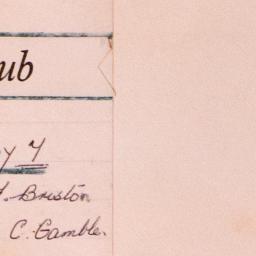 ub
y 4
. Briston
C. Gamble.